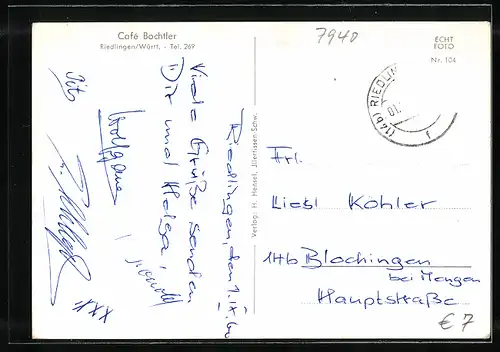 Café Bachtler
Riedlingen/Württ. - Tel. 269
7940
ECHT
FOTO
Nr. 104
(14b) RIEDLIN
01.
f
Riedlingen, den 1.IX.60
Viele Grüße senden
Dir und Helga,
Wolfgang
XXX
Verlag: H. Hensel, Jllerrieden-Schw.
Frl.
Liesl Köhler
14b Blochingen
bei Mengen
Hauptstraße
€ 7